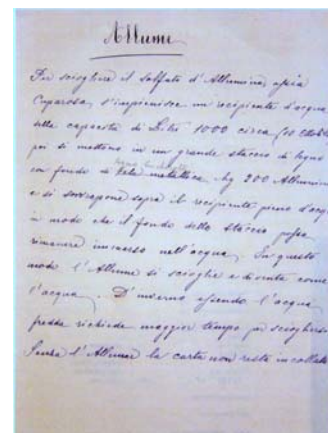 Allume
Per sciogliere il solfato d'Allumina, ossia
Caparosa, s'impienisce un recipiente d'acqua
della capacità di Litri 1000 circa (10 Ettol
poi si mettono in un grande staccio di legno
con fondo di tela metallica kg 200 Allumina
e si sovrapone sopra il recipiente pieno d'acq
in modo che il fondo dello staccio possa
rimanere immerso nell'acqua. In questo
modo l'Allume si scioglie e diventa come
l'acqua. D'inverno essendo l'acqua
fredda richiede maggior tempo per sciogliersi
Senza l'Allume la carta non resta incollata